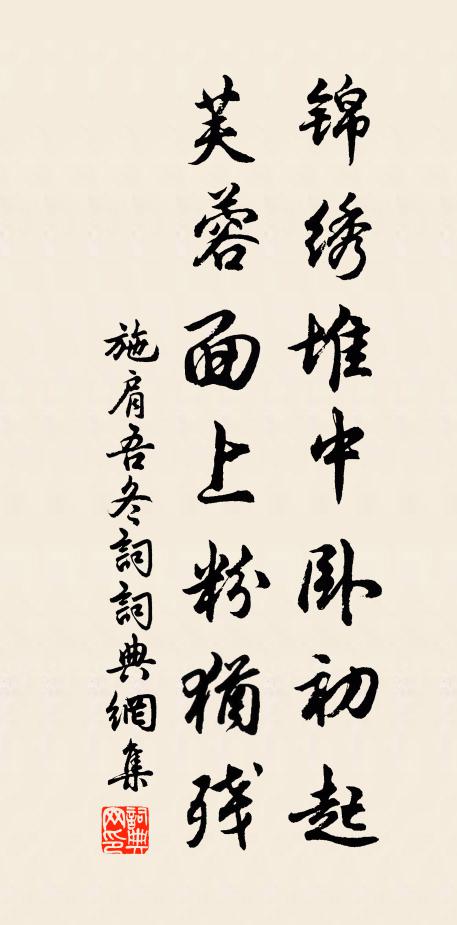 锦绣堆中卧初起
芙蓉面上粉犹残
施肩吾冬詞詞典網集
詞典网印